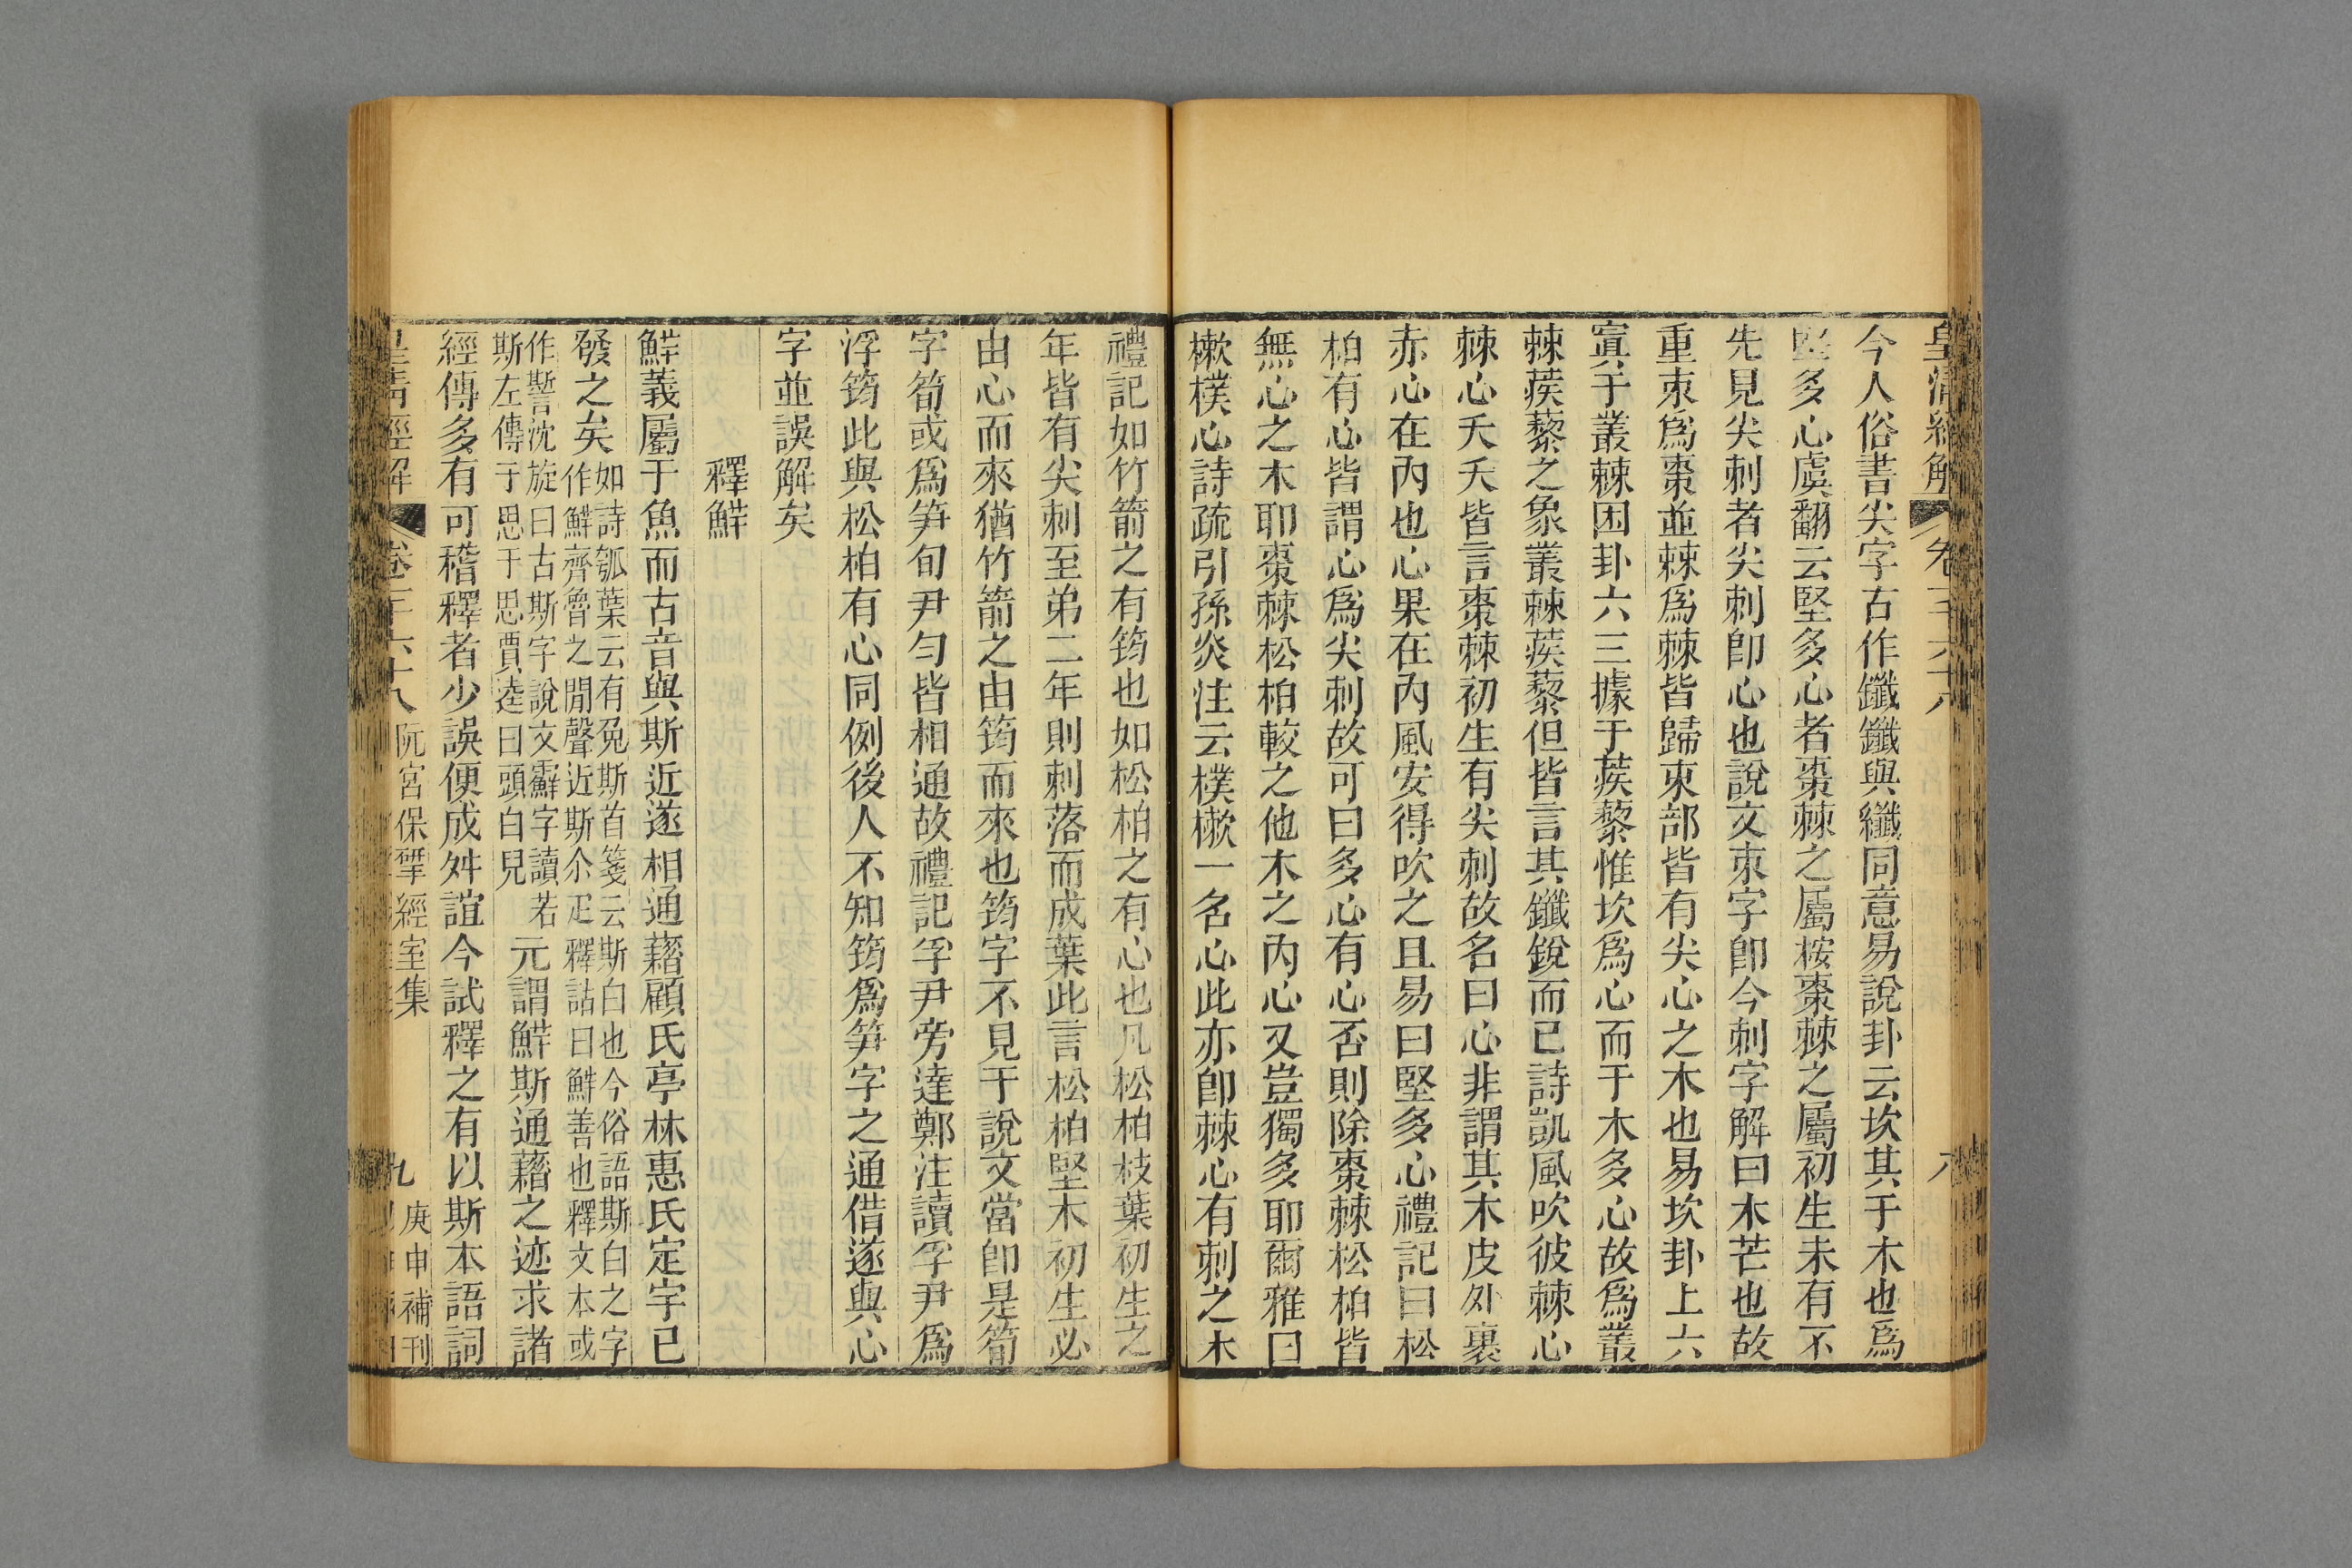 皇清經解 卷一千六十八 八
今人俗書尖字古作鑯鑯與纖同意易說卦云坎其于木也爲
堅多心虞翻云堅多心者棗棘之屬桉棗棘之屬初生未有不
先見尖刺者尖刺卽心也說文朿字卽今刺字解曰木芒也故
重朿爲棗並棘爲棘皆歸朿部皆有尖心之木也易坎卦上六
寘于叢棘困卦六三據于蒺藜惟坎爲心而于木多心故爲叢
棘蒺藜之象叢棘蒺藜但皆言其鑯銳而已詩凱風吹彼棘心
棘心夭夭皆言棗棘初生有尖刺故名曰心非謂其木皮外裹
赤心在內也心果在內風安得吹之且易曰堅多心禮記曰松
柏有心皆謂心爲尖刺故可曰多心有心否則除棗棘松柏皆
無心之木耶棗棘松柏較之他木之內心又豈獨多耶爾雅曰
樕樸心詩疏引孫炎注云樸樕一名心此亦卽棘心有刺之木
禮記如竹箭之有筠也如松柏之有心也凡松柏枝葉初生之
年皆有尖刺至弟二年則刺落而成葉此言松柏堅木初生必
由心而來猶竹箭之由筠而來也筠字不見于說文當卽是筍
字筍或爲笋旬尹勻皆相通故禮記孚尹旁達鄭注讀孚尹爲
浮筠此與松柏有心同例後人不知筠爲笋字之通借遂與心
字並誤解矣
釋鮮
鮮義屬于魚而古音與斯近遂相通藉顧氏亭林惠氏定宇已
發之矣如詩瓠葉云有兔斯首箋云斯白也今俗語斯白之字
作鮮齊魯之閒聲近斯尒疋釋詁曰鮮善也釋文本或
作誓沈旋曰古斯字說文霹字讀若
斯左傳于思于思賈逵曰頭白皃元謂鮮斯通藉之迹求諸
經傳多有可稽釋者少誤便成舛誼今試釋之有以斯本語詞
皇清經解 卷一千六十八 阮宮保揅經室集 九 庚申補刊